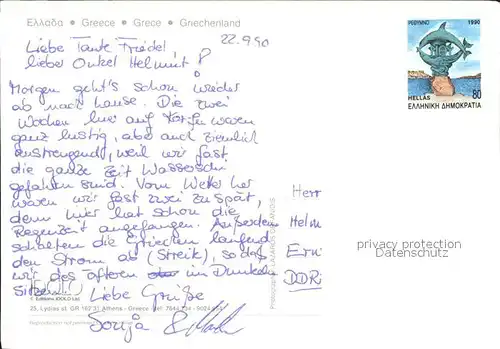 Ελλάδα • Greece • Grece • Griechenland
22.9.90
Liebe Tante Friedel,
lieber Onkel Helmut!
Morgen geht's schon wieder
ab nach Hause. Die zwei
Wochen hier auf Korfu waren
ganz lustig, aber auch ziemlich
anstrengend, weil wir fast
die ganze Zeit Wasserschi
gefahren sind. Vom Wetter her
waren wir fast zwei zu spät,
denn hier hat schon die
Regenzeit angefangen. Außerdem
schalteten die Griechen laufend
den Strom ab (Streik), so daß
wir des öfteren im Dunkeln
sitzen.
Liebe Grüße
Sonja &
© Editions JOOLO Ltd
25, Lysias st. GR 162 31 Athens - Greece
ΡΕΘΥΜΝΟ 1990
80
HELLAS
ΕΛΛΗΝΙΚΗ ΔΗΜΟΚΡΑΤΙΑ
Herr
Helm
DDR
privacy protection
Datenschutz